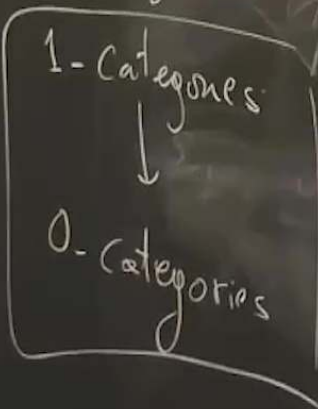 1-Categories
0-Categories